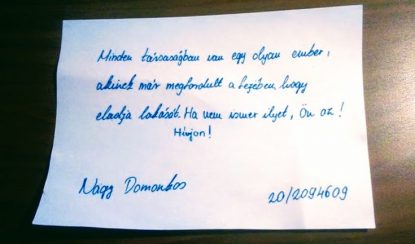 Minden társaságban van egy olyan ember,
akinek már megfordult a fejében, hogy
eladja lakását. Ha nem ismer ilyet, Ön az!
Hívjon!
Nagy Domonkos
20/2094609